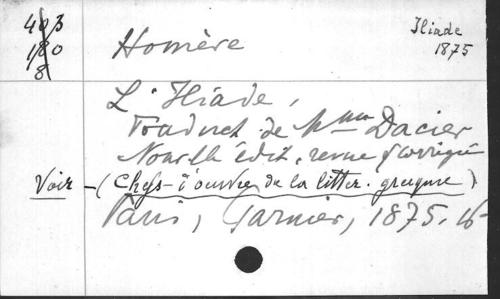 403
180
8
Homère
Iliade
1875
L'Iliade,
Traduct de Mme Dacier
Nouvelle édit. revue & corrigée
Voir - (Chefs-d'ouvre de la litter. grecque)
Paris, Garnier, 1875. 16-